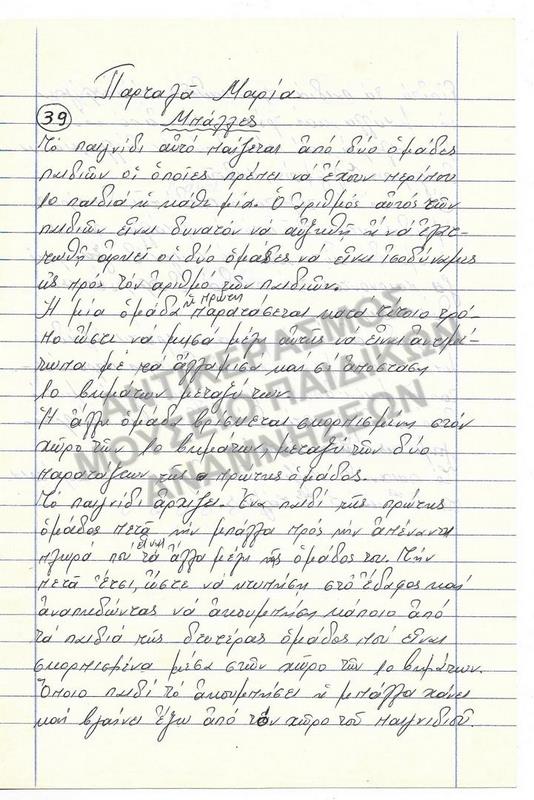 Παρταλᾶ Μαρία
39
Μπάλλες
Τό παιγνίδι αὐτό παίζεται ἀπό δύο ὁμάδες
παιδιῶν οἱ ὁποῖες πρέπει νά ἔχουν περίπου
10 παιδιά ἡ κάθε μία. Ὁ ἀριθμός αὐτός τῶν
παιδιῶν εἶναι δυνατόν νά αὐξηθῆ ἤ νά ἐλατ-
τωθῆ ἀρκεῖ οἱ δύο ὁμάδες νά εἶναι ἰσοδύναμες
ὡς πρός τόν ἀριθμό τῶν παιδιῶν.
Ἡ μία ὁμάδα ἡ πρώτη παρατάσσεται κατά τέτοιο τρό-
πο ὥστε νά μισά μέλη αὐτῆς νά εἶναι ἀντιμέ-
τωπα μέ τά ἄλλα μισά καί σέ ἀπόσταση
10 βημάτων μεταξύ των.
Ἡ ἄλλη ὁμάδα βρίσκεται σκορπισμένη στόν
χῶρο τῶν 10 βημάτων, μεταξύ τῶν δύο
παρατάξεων τῆς πρώτης ὁμάδος.
Τό παιγνίδι ἀρχίζει. Ἕνα παιδί τῆς πρώτης
ὁμάδος πετᾶ τήν μπάλλα πρός τήν ἀπέναντι
πλευρά πού εἶναι τά ἄλλα μέλη τῆς ὁμάδος του. Τήν
πετᾶ ἔτσι, ὥστε νά κτυπήση στό ἔδαφος καί
ἀναπηδώντας νά ἀκουμπήση κάποιο ἀπό
τά παιδιά τῆς δευτέρας ὁμάδος πού εἶναι
σκορπισμένα μέσα στόν χῶρο τῶν 10 βημάτων.
Ὅποιο παιδί τό ἀκουμπήσει ἡ μπάλλα χάνει
καί βγαίνει ἔξω ἀπό τόν χῶρο τοῦ παιγνιδιοῦ.
ΑΝΤΙΚΕΡΑΣΜΟΣ
ΜΟΥΣΕΙΟ ΠΑΙΔΙΚΩΝ
ΑΝΑΜΝΗΣΕΩΝ